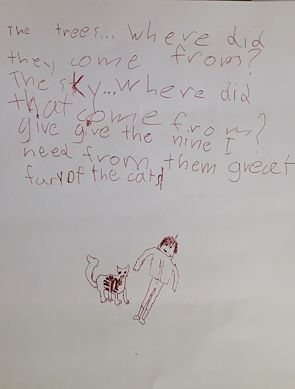 The trees... where did
they come from?
The sky...where did
that come from?
give give the nine I
need from them great
fury of the cats